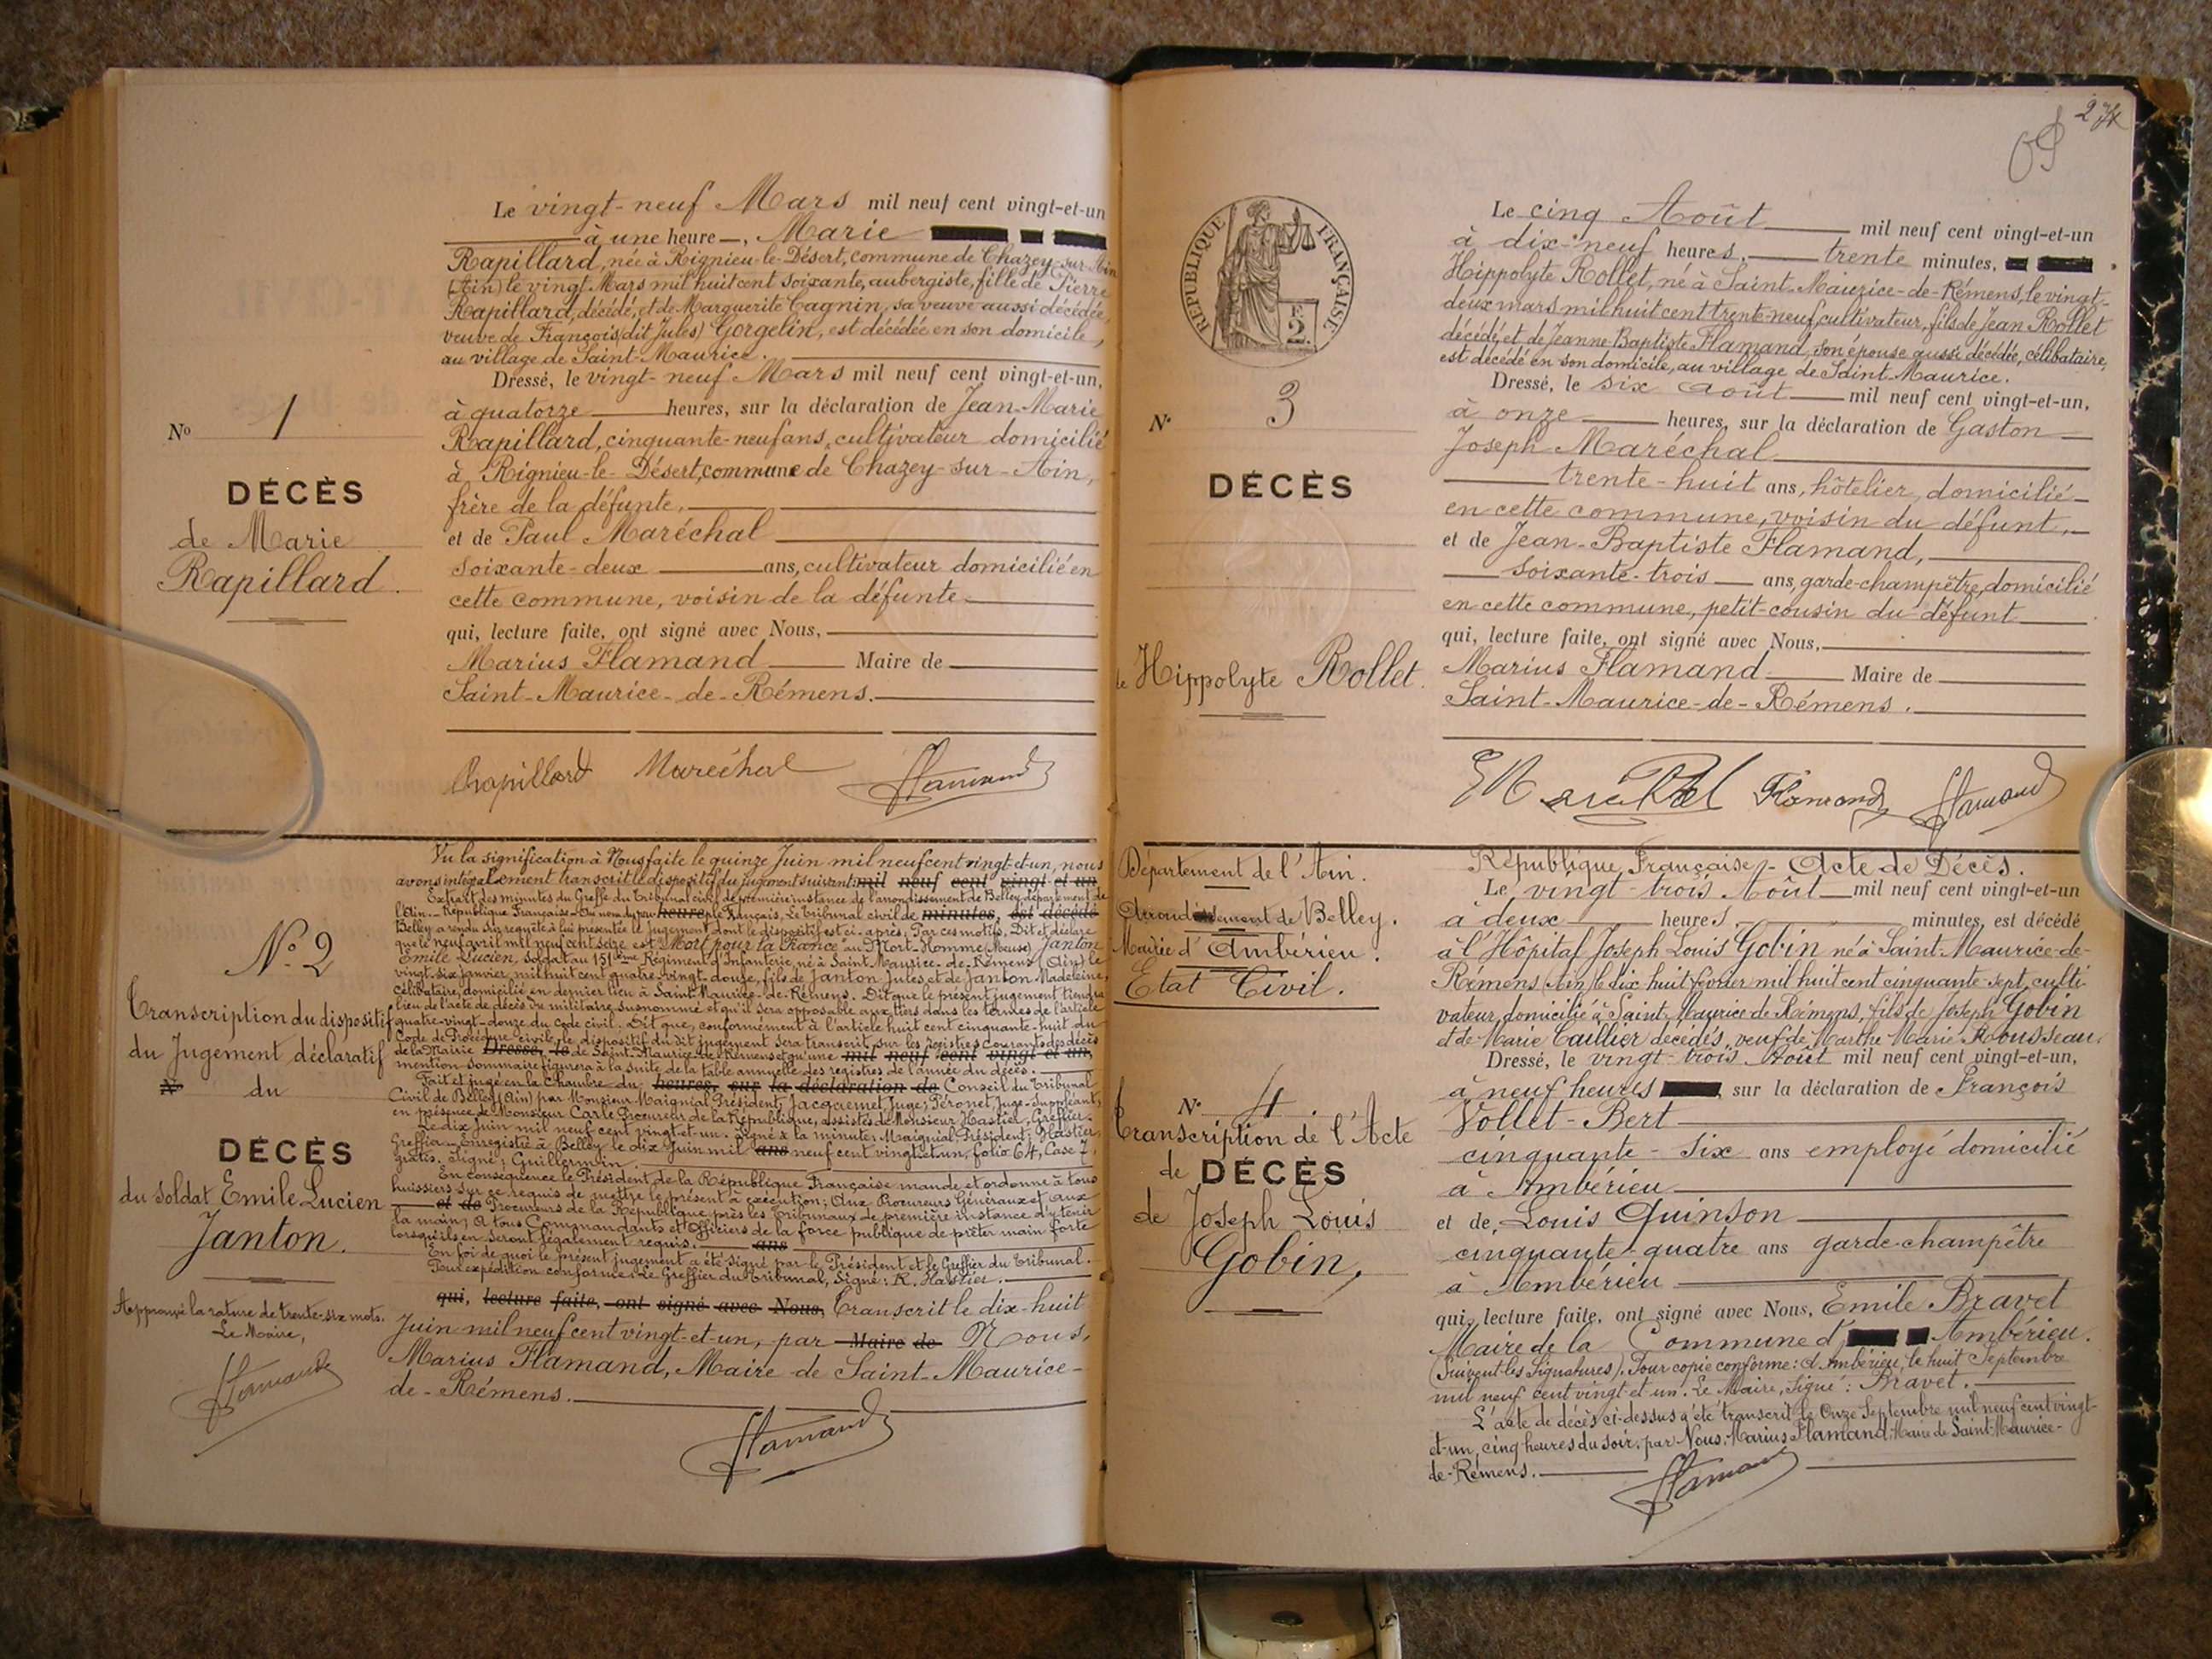 Le vingt-neuf Mars mil neuf cent vingt-et-un
à une heure, Marie
Rapillard, née à Rignieu-le-Désert, commune de Chazey-sur-Ain
(Ain) le vingt Mars mil huit cent soixante, aubergiste, fille de Pierre
Rapillard, décédé, et de Marguerite Cagnin, sa veuve aussi décédée,
veuve de François (dit Jules) Gorgelin, est décédée en son domicile,
au village de Saint-Maurice.
Dressé, le vingt-neuf Mars mil neuf cent vingt-et-un,
à quatorze heures, sur la déclaration de Jean-Marie
Rapillard, cinquante-neuf ans, cultivateur domicilié
à Rignieu-le-Désert, commune de Chazey-sur-Ain,
frère de la défunte,
et de Paul Maréchal
soixante-deux ans, cultivateur domicilié en
cette commune, voisin de la défunte
qui, lecture faite, ont signé avec Nous,
Marius Flamand Maire de
Saint-Maurice-de-Rémens.
Rapillard Maréchal Flamand
No 1
DÉCÈS
de Marie
Rapillard.
Vu la signification à Nous faite le quinze Juin mil neuf cent vingt-et-un, nous
avons intégralement transcrit le dispositif du jugement suivant: mil neuf cent vingt et un
Extrait des minutes du Greffe du Tribunal civil de première instance de l'arrondissement de Belley, département de
l'Ain.- République Française- Au nom du peuple Français, Le Tribunal civil de minutes, est décédé
Belley a rendu sur requête à lui présentée le jugement dont le dispositif est ci-après: Par ces motifs, Dit et déclare
que le neuf avril mil neuf cent seize est "Mort pour la France" au Mort-Homme (Meuse) Janton
Emile Lucien, soldat au 151ème Régiment d'Infanterie, né à Saint-Maurice-de-Rémens (Ain) le
vingt-six janvier mil huit cent quatre-vingt-douze, fils de Janton Jules et de Janton Madeleine,
célibataire, domicilié en dernier lieu à Saint-Maurice-de-Rémens. Dit que le présent jugement tiendra
lieu de l'acte de décès du militaire susnommé et qu'il sera opposable aux tiers dans les termes de l'article
quatre-vingt-douze du code civil. Dit que, conformément à l'article huit cent cinquante-huit du
Code de Procédure civile, le dispositif du dit jugement sera transcrit sur les registres courants des décès
de la Mairie Dressé, le de Saint-Maurice-de-Rémens et qu'une mil neuf cent vingt et un,
mention sommaire figurera à la suite de la table annuelle des registres de l'année du décès.
Fait et jugé en la Chambre du heures, sur la déclaration de Conseil du Tribunal
Civil de Belley (Ain) par Monsieur Maignial Président, Jacquemet Juge, Péronet, Juge-Suppléant,
en présence de Monsieur Carle Procureur de la République, assistés de Monsieur Hastier, Greffier.
Le dix Juin mil neuf cent vingt-et-un. Signé à la minute: Maignial Président; Hastier,
Greffier. Enregistré à Belley le dix Juin mil ans neuf cent vingt et un, folio 64, Case 7,
gratis. Signé: Guillermin.
En conséquence le Président de la République Française mande et ordonne à tous
huissiers sur ce requis de mettre le présent à exécution; Aux Procureurs Généraux et aux
et de Procureurs de la République près les Tribunaux de première instance d'y tenir
la main; A tous Commandants et Officiers de la force publique de prêter main forte
lorsqu'ils en seront légalement requis. ans
En foi de quoi le présent jugement a été signé par le Président et le Greffier du Tribunal.
Pour expédition conforme: Le Greffier du Tribunal, Signé: R. Hastier.
qui, lecture faite, ont signé avec Nous, Transcrit le dix-huit
Juin mil neuf cent vingt-et-un, par Maire de Nous,
Marius Flamand, Maire de Saint-Maurice-
de-Rémens.
Flamand
No. 2
Transcription du dispositif
du Jugement déclaratif
No du
DÉCÈS
du soldat Emile Lucien
Janton.
Approuvé la rature de trente-six mots.
Le Maire,
Flamand
274
RÉPUBLIQUE FRANÇAISE
2
Le cinq Août mil neuf cent vingt-et-un
à dix-neuf heures, trente minutes,
Hippolyte Rollet, né à Saint-Maurice-de-Rémens, le vingt-
deux mars mil huit cent trente-neuf, cultivateur, fils de Jean Rollet
décédé, et de Jeanne-Baptiste Flamand, son épouse aussi décédée, célibataire,
est décédé en son domicile, au village de Saint-Maurice.
Dressé, le six Août mil neuf cent vingt-et-un,
à onze heures, sur la déclaration de Gaston
Joseph Maréchal
trente-huit ans, hôtelier, domicilié
en cette commune, voisin du défunt,
et de Jean-Baptiste Flamand,
soixante-trois ans, garde-champêtre, domicilié
en cette commune, petit-cousin du défunt
qui, lecture faite, ont signé avec Nous,
Marius Flamand Maire de
Saint-Maurice-de-Rémens.
Flamand Flamand
No 3
DÉCÈS
de Hippolyte Rollet.
Département de l'Ain.
Arrondissement de Belley.
Mairie d'Ambérieu.
Etat Civil.
No 4.
Transcription de l'Acte
de DÉCÈS
de Joseph Louis
Gobin,
République Française - Acte de Décès.
Le vingt-trois Août mil neuf cent vingt-et-un
à deux heures minutes, est décédé
à l'Hôpital Joseph Louis Gobin né à Saint-Maurice-de-
Rémens (Ain) le dix huit février mil huit cent cinquante-sept, culti
vateur, domicilié à Saint-Maurice de Rémens, fils de Joseph Gobin
et de Marie Caillier décédés, veuf de Marthe Marie Rousseau.
Dressé, le vingt-trois Août mil neuf cent vingt-et-un,
à neuf heures sur la déclaration de François
Vollet-Bert
cinquante-six ans employé domicilié
à Ambérieu
et de Louis Quinson
cinquante-quatre ans garde-champêtre
à Ambérieu
qui, lecture faite, ont signé avec Nous, Emile Bravet
Maire de la Commune d' Ambérieu.
(Suivent les Signatures). Pour copie conforme: Ambérieu, le huit Septembre
mil neuf cent vingt et un. Le Maire, Signé: Bravet.
L'acte de décès ci-dessus a été transcrit le Onze Septembre mil neuf cent vingt-
et-un, cinq heures du soir, par Nous, Marius Flamand, Maire de Saint-Maurice-
de-Rémens.
Flamand